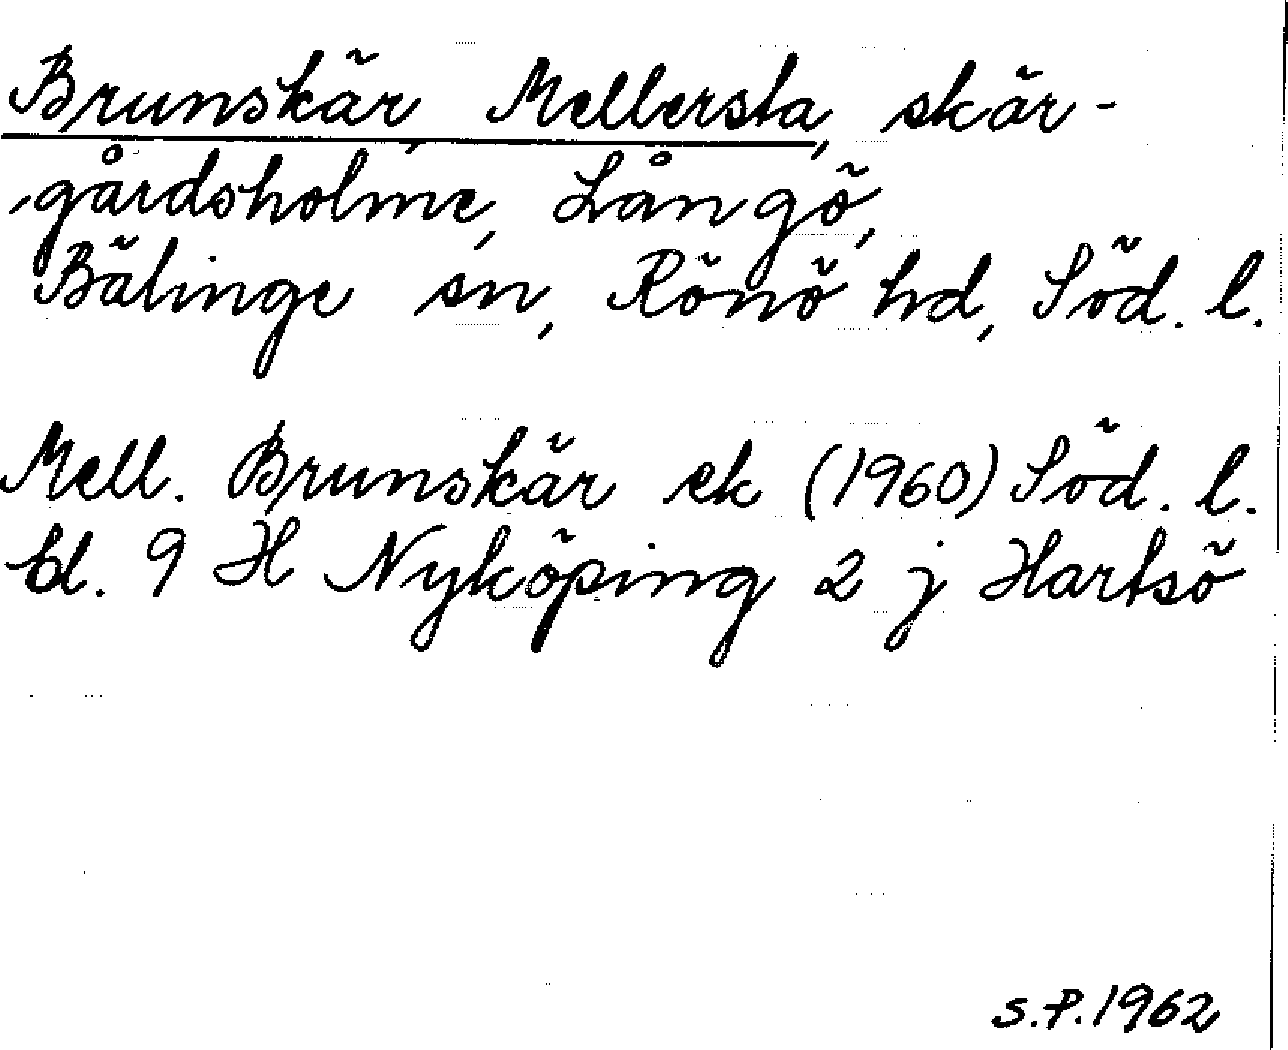 Brunskär, Mellersta, skär-
gårdsholme, Långö,
Bälinge sn, Rönö hd, Söd. l.
Mell. Brunskär ek (1960) Söd. l.
bl. 9 H Nyköping 2 j Hartsö
S.P. 1962